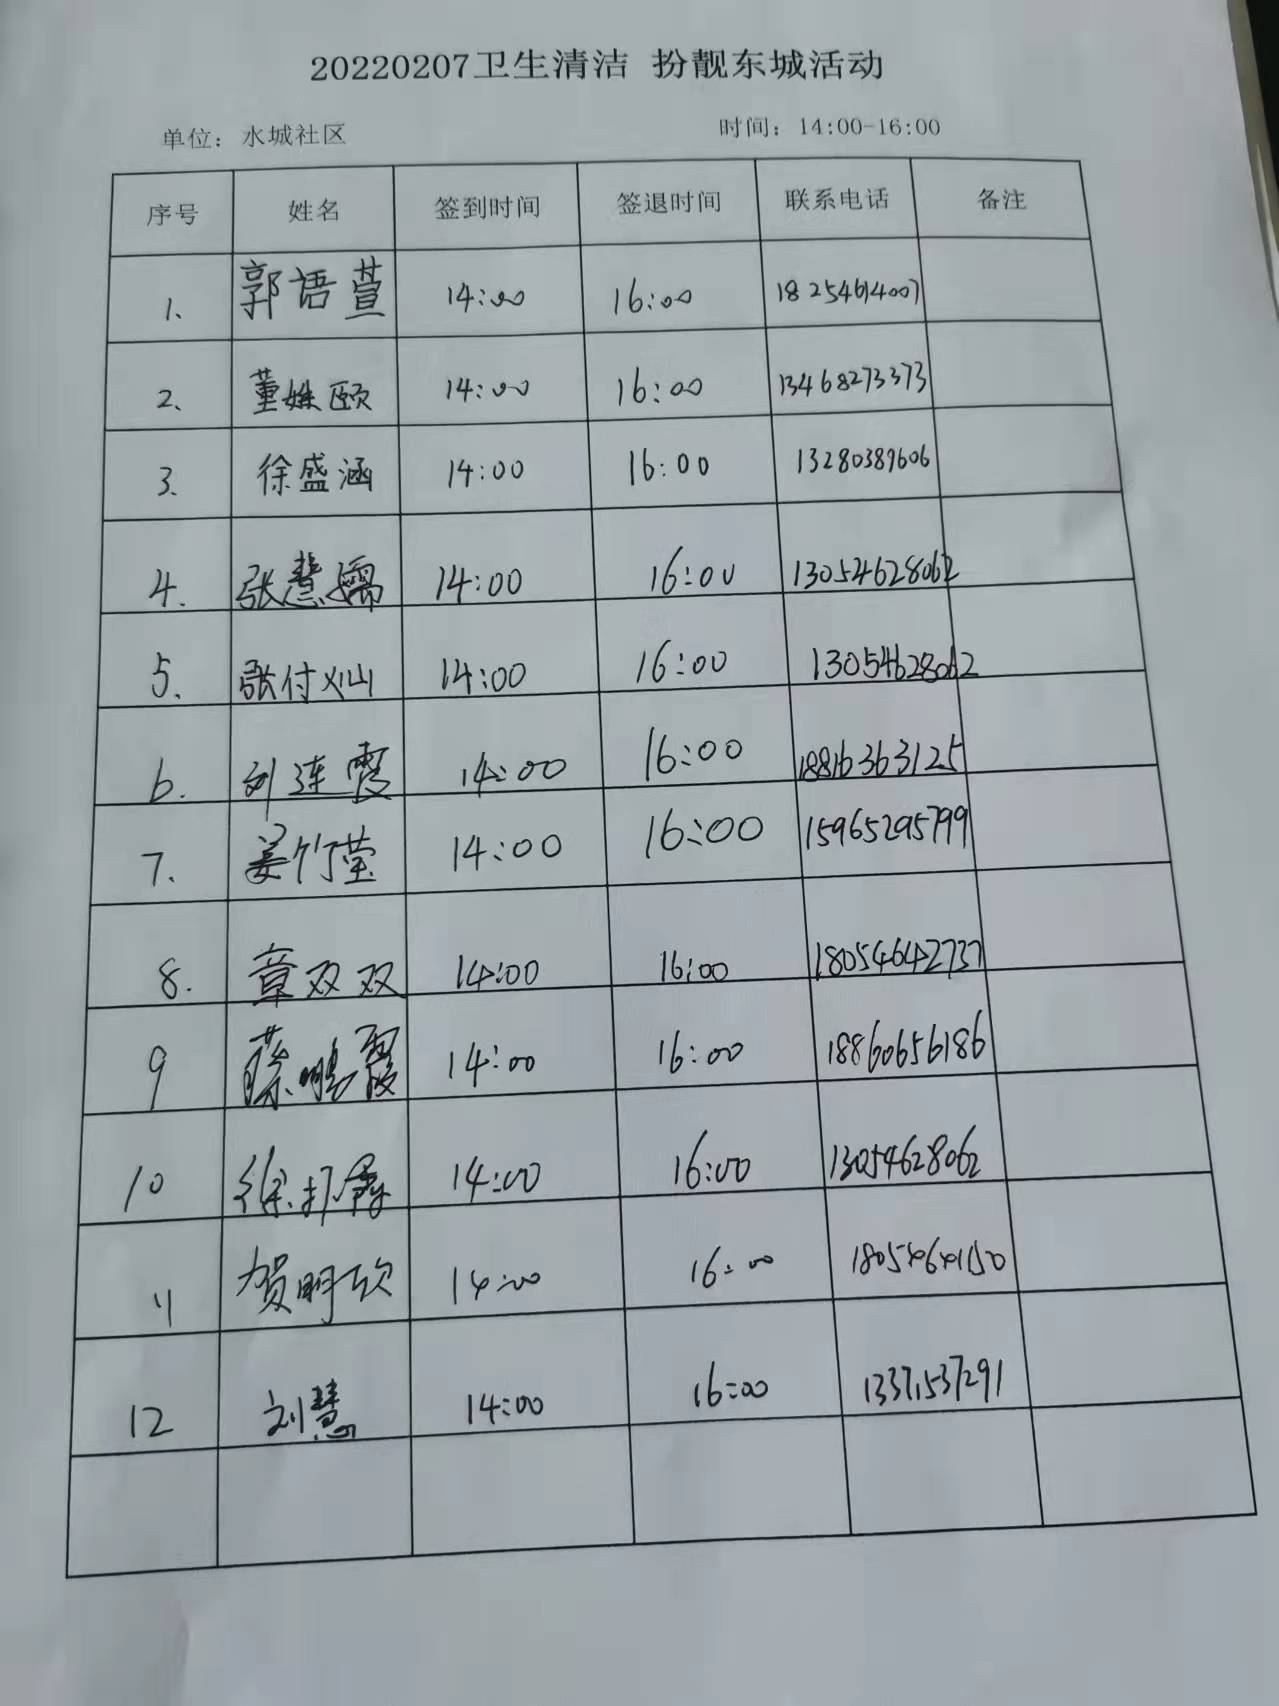 20220207卫生清洁 扮靓东城活动
单位：水城社区 时间：14:00-16:00
序号 姓名 签到时间 签退时间 联系电话 备注
1、 郭语萱 14:00 16:00 18254614007
2、 董姝颐 14:00 16:00 13468273373
3、 徐盛涵 14:00 16:00 13280389606
4. 张慧孺 14:00 16:00 13054628062
5、 张付灿 14:00 16:00 13054628062
6. 刘连霞 14:00 16:00 18816363125
7、 姜竹莹 14:00 16:00 15965295799
8. 章双双 14:00 16:00 18054642737
9 蔡鹏霞 14:00 16:00 18860656186
10 14:00 16:00 13054628062
11 贺明欣 14:00 16:00 18054641150
12 刘慧 14:00 16:00 13371537291